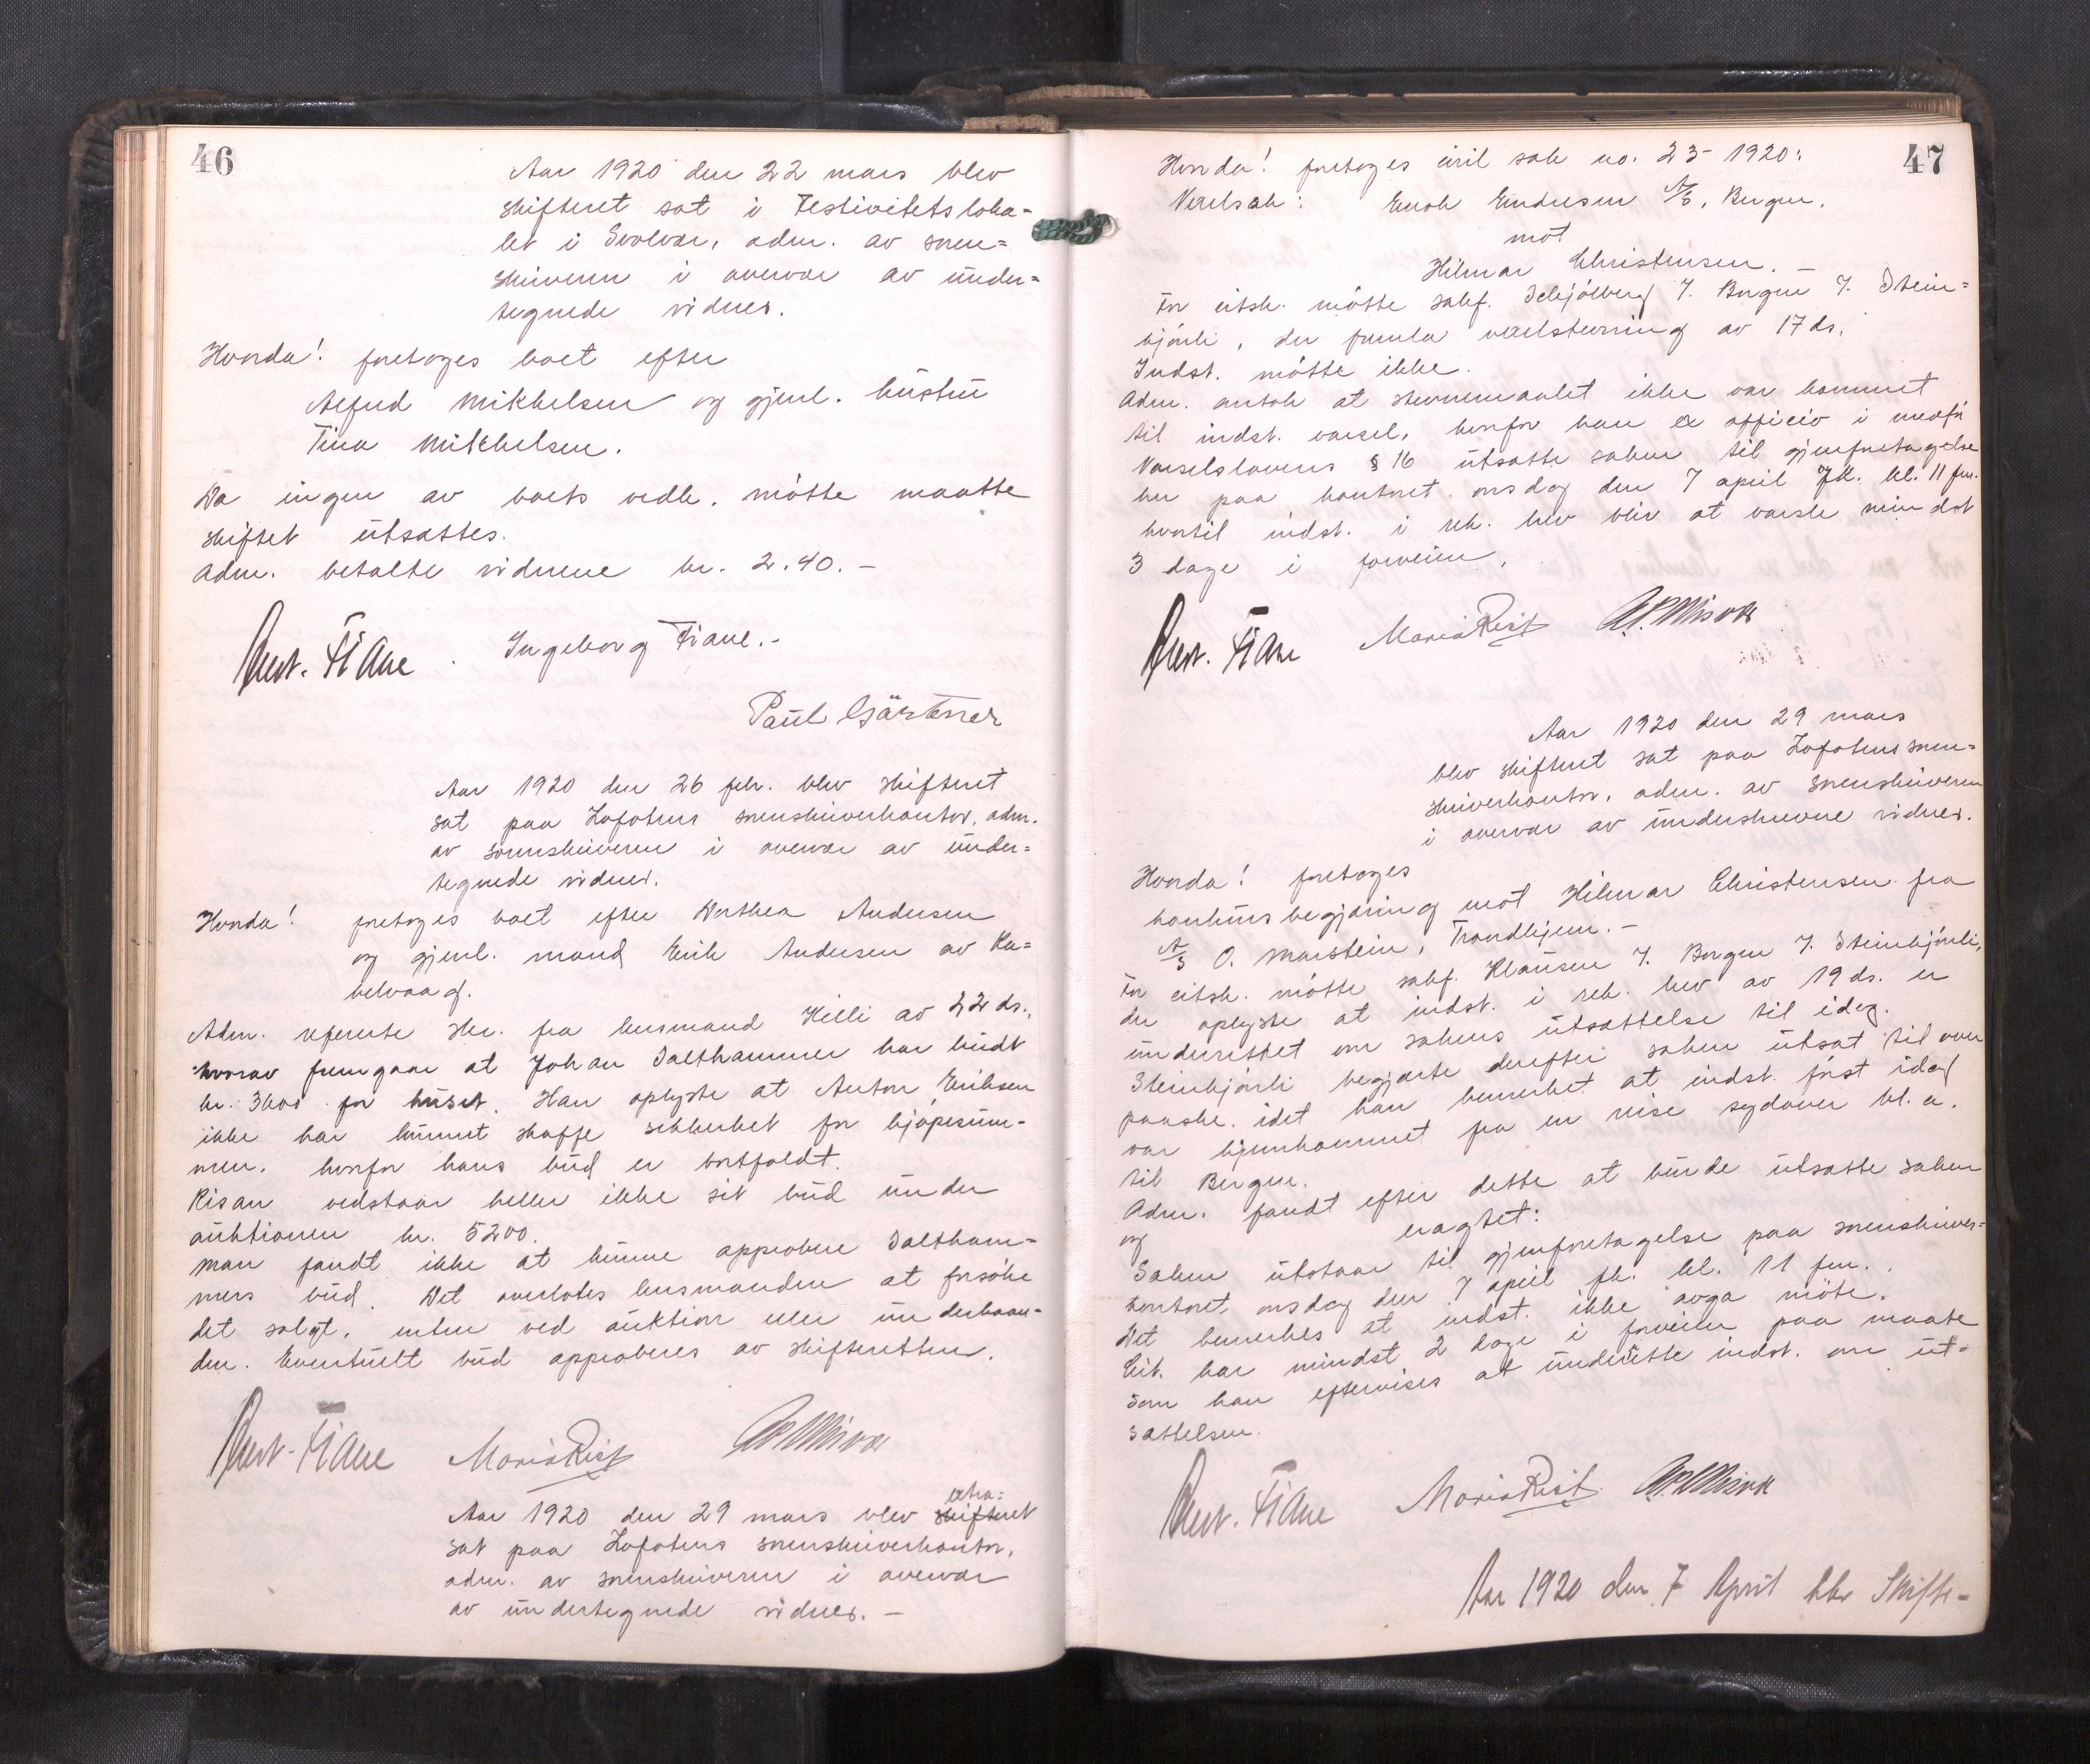 46
Aar 1920 den 22 mars blev
skifteret sat i Festivitetsloka-
let i Svolvær, adm. av soren-
skriveren i overvær av under-
tegnede vidner.
Hvorda! foretoges boet efter
Alfred Mikkelsen og gjenl. hustru
Tina Mikkelsen.
Da ingen av boets vedk. møtte maatte
skiftet utsattes.
Adm. betalte vidnene kr. 2.40. -
Fiane. Ingeborg Fiane. -
Paul Gärtner
Aar 1920 den 26 febr. blev skifteret
sat paa Lofotens sorenskriverkontor, adm.
av sorenskriveren i overvær av under-
tegnede vidner.
Hvorda! foretoges boet efter Dorthea Andersen
og gjenl. mand Erik Andersen av Ka-
belvaag.
Adm. refererte skr. fra lensmand Killi av 22 ds.,
hvorav fremgaar at Johan Salthammer har budt
kr. 3600 for huset. Han oplyste at Anton Eriksen
ikke har kunnet skaffe sikkerhet for kjøpesum-
men, hvorfor hans bud er bortfaldt.
Risan vedstaar heller ikke sit bud under
auktionen kr. 5200.
Man fandt ikke at kunne approbere Saltham-
mers bud. Det overlotes lensmanden at forsøke
det solgt, enten ved auktion eller underhaan-
den. Eventuelt bud approberes av skifteretten.
Fiane Maria Rist
Aar 1920 den 29 mars blev skifteret
extra=
sat paa Lofotens sorenskriverkontor,
adm. av sorenskriveren i overvær
av undertegnede vidner. -
47
Hvorda! foretoges civil sak no. 23 - 1920:
Vexelsak: Enok Endresen A/S, Bergen.
mot
Hilmar Christensen. -
For citsk. møtte sakf. Schjølberg v. Borgen v. Stein-
bjørli, der fremla vexelstevning av 17 ds.
Indst. møtte ikke.
Adm. antok at stevnemaalet ikke var kommet
til indst. varsel, hvorfor han ex officio i medfør
Varselslovens § 16 utsatte saken til gjenforetagelse
her paa kontoret onsdag den 7 april fk. kl. 11 fm.
hvortil indst. i rek. brev blir at varsle mindst
3 dage i forveien.
Fiane Maria Rist
Aar 1920 den 29 mars
blev skifteret sat paa Lofotens soren-
skriverkontor, adm. av sorenskriveren
i overvær av underskrevne vidner.
Hvorda! foretoges
konkursbegjæring mot Hilmar Christensen fra
A/S O. Marstein, Trondhjem. -
For citsk. møtte sakf. Klausen v. Borgen v. Steinbjørli,
der oplyste at indst. i rek. brev av 19 ds. er
underrettet om sakens utsættelse til idag.
Steinbjørli begjærte derefter saken utsat til over
paaske, idet han bemerket at indst. først idag
var hjemkommet fra en reise sydover bl. a.
til Bergen.
Adm. fandt efter dette at burde utsætte saken
og eragtet:
Saken utstaar til gjenforetagelse paa sorenskriver-
kontoret onsdag den 7 april fk. kl. 11 fm.
Det bemerkes at indst. ikke avga møte.
Cit. har mindst 2 dage i forveien paa maate
som han eftervises at underrette indst. om ut-
sættelsen.
Fiane Maria Rist
Aar 1920 den 7 April blev Skifte-